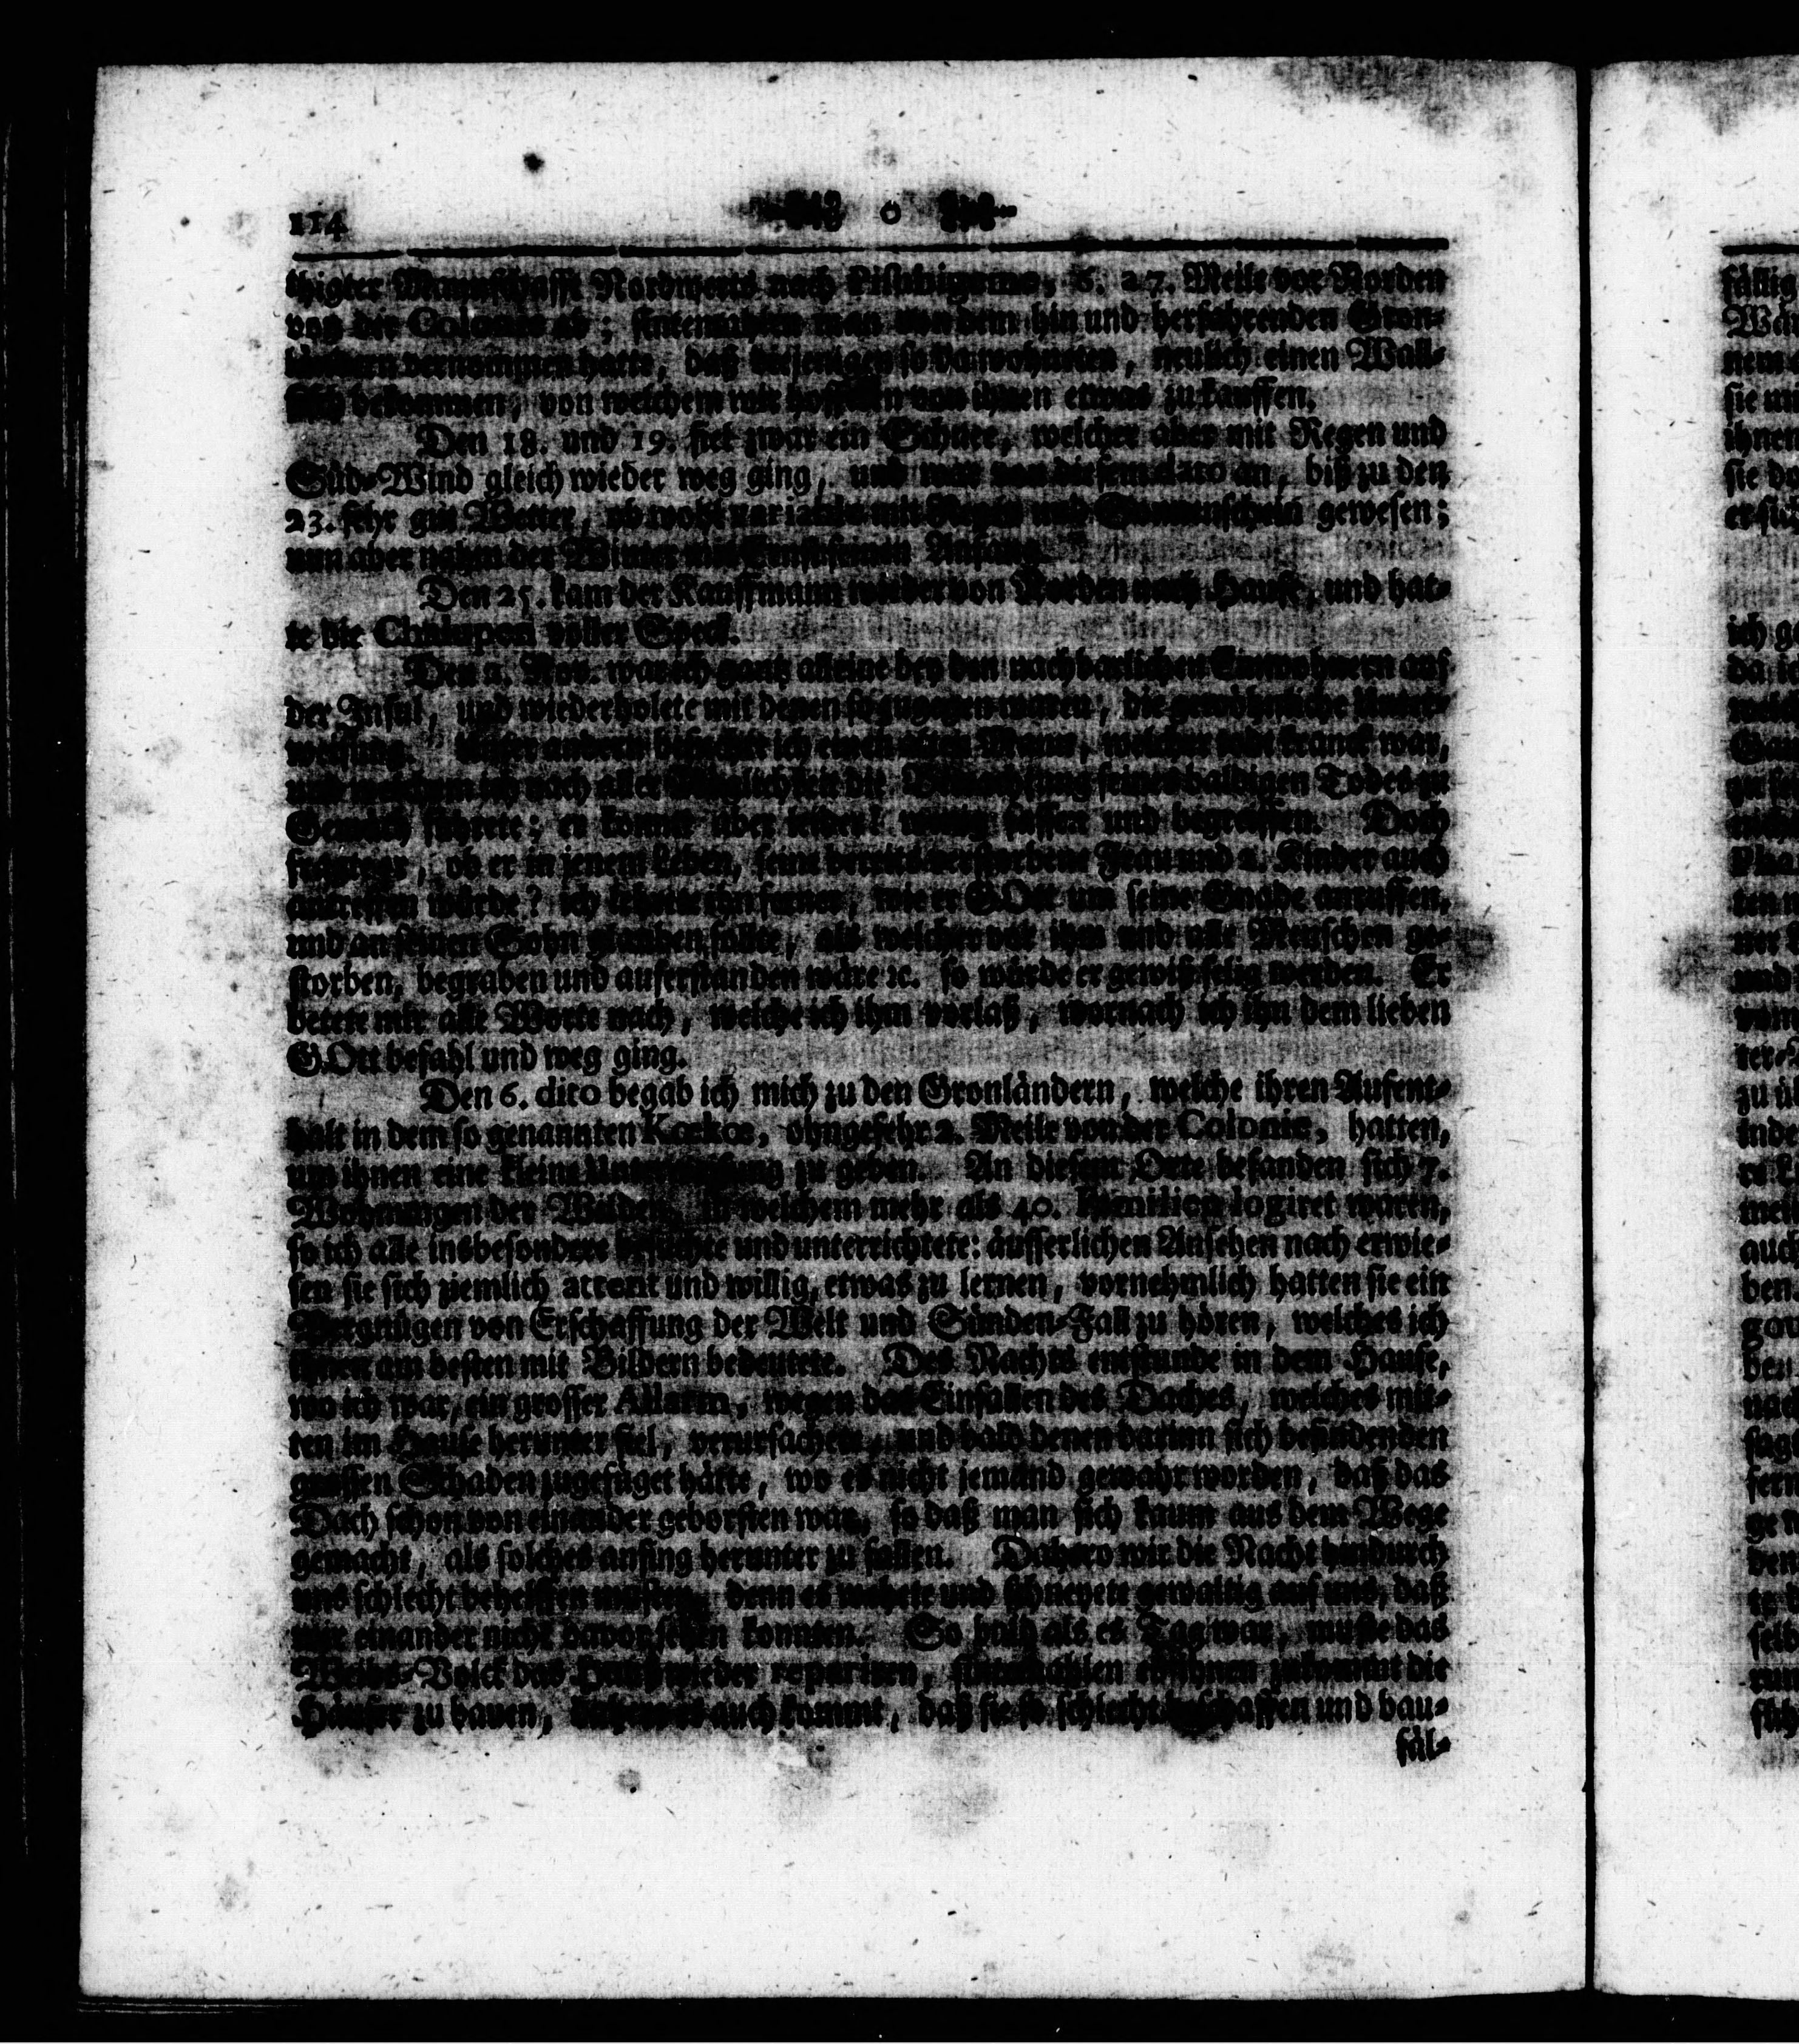 114 o
thigter Mannschafft Nordwerts nach 6. 27. Meile vor Norden
von der Colonie ab; sintemahlen man von dem hin und herfahrenden Gron-
ländern vernommen hatte, daß diejenigen so da wohneten, neulich einen Wall-
fisch bekommen, von welchem wir hoffeten von ihnen etwas zu kauffen.
Den 18. und 19. fiel zwar ein Schnee, welcher aber mit Regen und
Süd-Wind gleich wieder weg ging, und war von diesem dato an, biß zu den
23. sehr gut Wetter, ob wohl variable mit Regen und Sonnenschein gewesen;
nun aber nahm der Winter mit Ernst seinen Anfang.
Den 25. kam der Kauffmann wieder von Norden nach Hause, und hat-
te die Chaluppen voller Speck.
Den 2. Nov. war ich gantz alleine bey den nachbarlichen Einwohnern auf
der Insul, und wiederholete mit denen so zugegen waren, die gewöhnliche Unter-
weisung. Unter andern besuchte ich einen alten Mann, welcher sehr kranck war,
und welchem ich nach aller Möglichkeit die seines baldigen Todes zu
Gemüth führete; er konnte aber leider! wenig fassen und begreiffen. Doch
fragte er, ob er in jenem Leben, seine bereits verstorbene Frau und 2. Kinder auch
antreffen würde? ich lehrete ihn ferner, wie er GOtt um seine Gnade anruffen,
und an seinen Sohn glauben sollte, als welcher vor ihm und alle Menschen ge-
storben, begraben und auferstanden wäre ꝛc. so würde er gewiß selig werden. Er
betete mir alle Worte nach, welche ich ihm vorlaß, wornach ich ihn dem lieben
GOtt befahl und weg ging.
Den 6. dito begab ich mich zu den Gronländern, welche ihren Aufent-
halt in dem so genannten Kookoe, ohngefehr 2. Meile von der Colonie, hatten,
um ihnen eine kleine Unterweisung zu geben. An diesem Orte befanden sich 7.
Wohnungen der Wilden, in welchem mehr als 40. Familien logiret waren,
so ich alle insbesondere besuchte und unterrichtete: äusserlichen Ansehen nach erwie-
sen sie sich ziemlich attent und willig, etwas zu lernen, vornehmlich hatten sie ein
Vergnügen von Erschaffung der Welt und Sünden-Fall zu hören, welches ich
ihnen am besten mit Bildern bedeutete. Des Nachts entstunde in dem Hause,
wo ich war, ein grosser Allarm, wegen das Einfallen des Daches, welches mit-
ten im Hause herunter fiel, verursachet, und bald denen darinn sich befindenden
grossen Schaden zugefüget hätte, wo es nicht jemand gewahr worden, daß das
Dach schon von einander geborsten war, so daß man sich kaum aus dem Wege
gemacht, als solches anfing herunter zu fallen. Dahero wir die Nacht hindurch
uns schlecht behelffen musten, denn es wehete und schneyete gewaltig auf uns, daß
wir einander nicht davor sehen konnten. So bald als es Tag war, muste das
Weibs-Volck das Hauß wieder repariren, sintemahlen es ihnen zukommt die
Häuser zu bauen, dahero es auch kommt, daß sie so schlecht beschaffen und bau-
fäl-